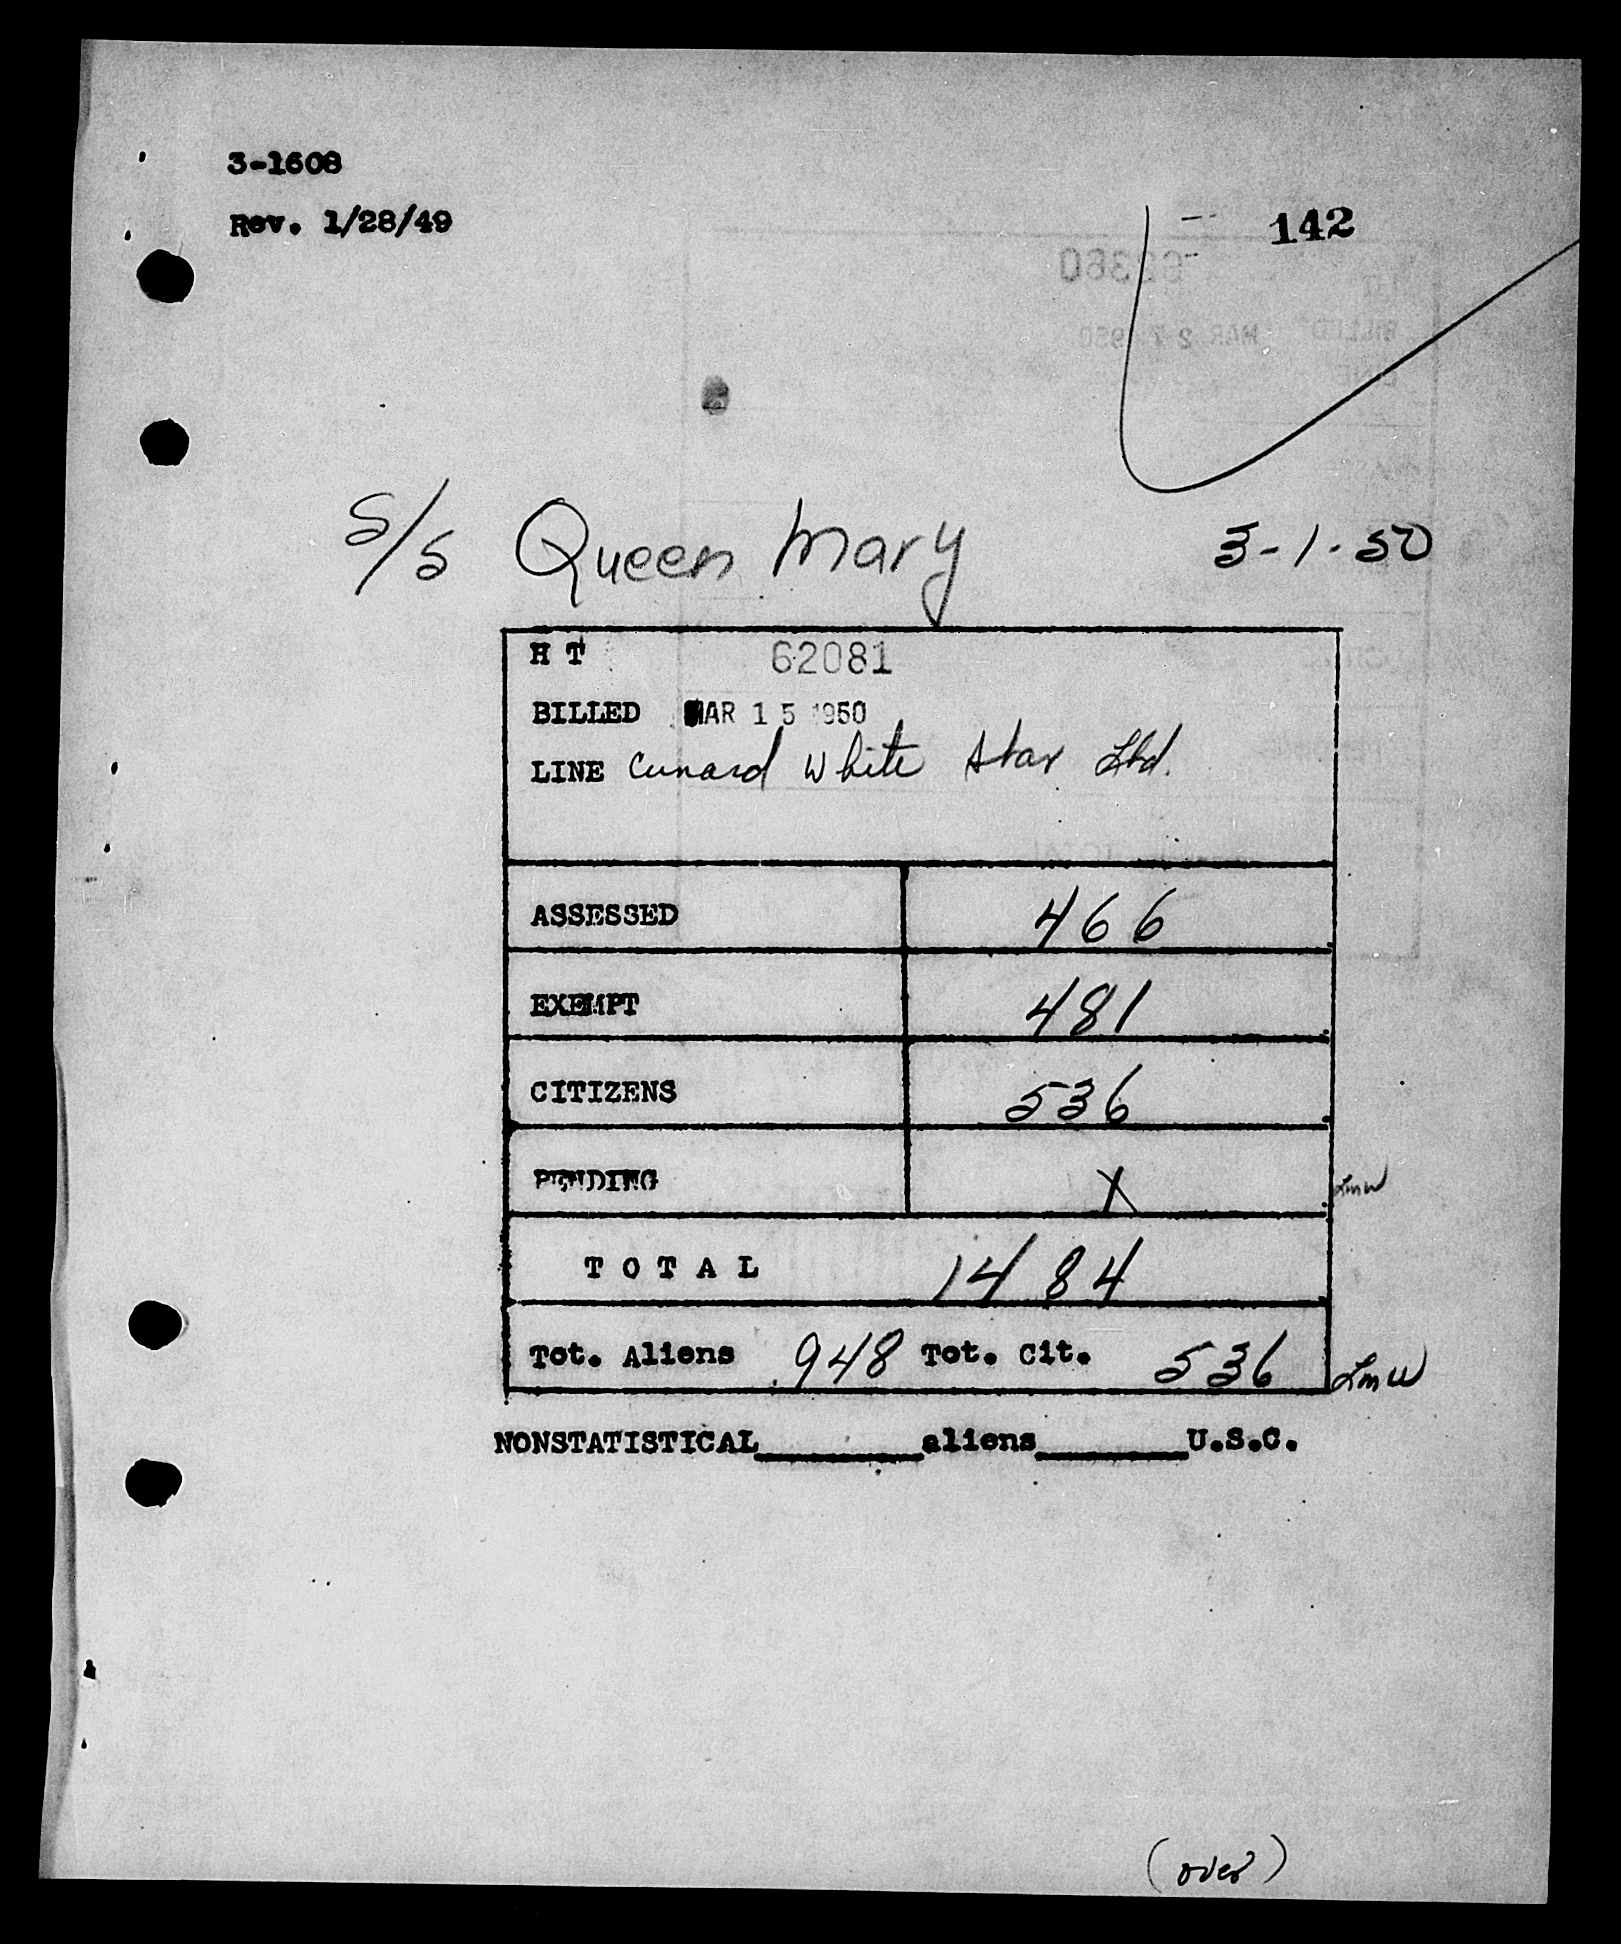 3-1608
Rev. 1/28/49
142
62360
BILLED MAR 27 1950
LINE
S/S Queen Mary 3-1-50
H T 62081
BILLED MAR 15 1950
LINE Cunard White Star Ltd.
ASSESSED 466
EXEMPT 481
CITIZENS 536
PENDING X LMW
T O T A L 1484
Tot. Aliens 948 Tot. Cit. 536 LMW
NONSTATISTICAL________aliens________U.S.C.
(over)